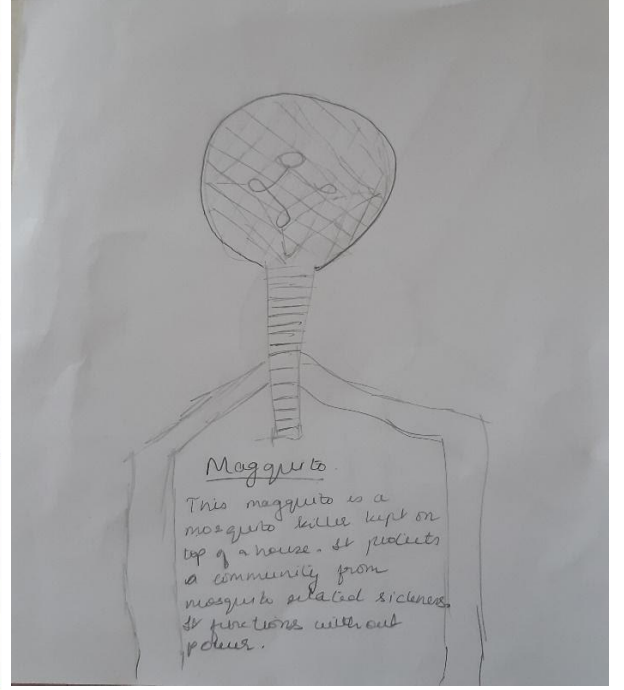 Magquito.
This magquito is a
mosquito killer kept on
top of a house. It protects
a community from
mosquito related sickness.
It functions without
power.